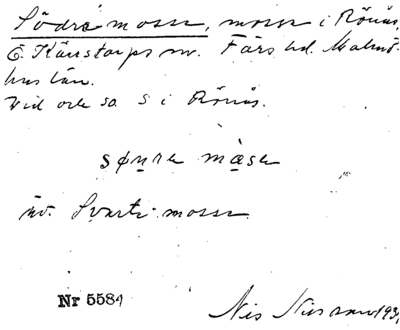 Södra mosse, mosse i Rönås,
Ö. Kärrstorps sn. Färs hd. Malmö-
hus län.
Vid och so S i Rönås.
søṉrə ma̱sə
äv. Svarte-mosse
Nr 5584
Nils Nilsson 193